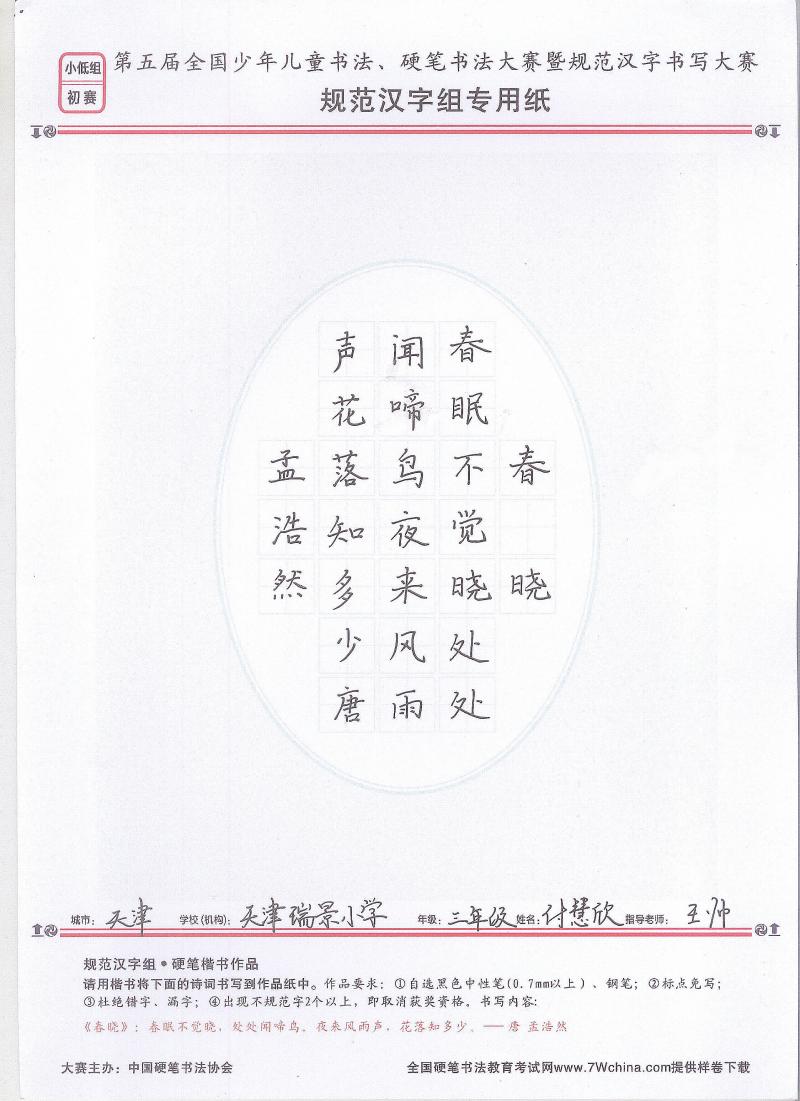 小低组
初赛
第五届全国少年儿童书法、硬笔书法大赛暨规范汉字书写大赛
规范汉字组专用纸
春晓
春眠不觉晓处处
闻啼鸟夜来风雨
声花落知多少唐
孟浩然
城市：天津 学校(机构)：天津瑞景小学 年级：三年级 姓名：付慧欣 指导老师：王帅
规范汉字组•硬笔楷书作品
请用楷书将下面的诗词书写到作品纸中。作品要求：①自选黑色中性笔(0.7mm以上）、钢笔；②标点免写；
③杜绝错字、漏字；④出现不规范字2个以上，即取消获奖资格。书写内容：
《春晓》：春眠不觉晓，处处闻啼鸟。夜来风雨声，花落知多少。——唐 孟浩然
大赛主办：中国硬笔书法协会 全国硬笔书法教育考试网www.7Wchina.com提供样卷下载